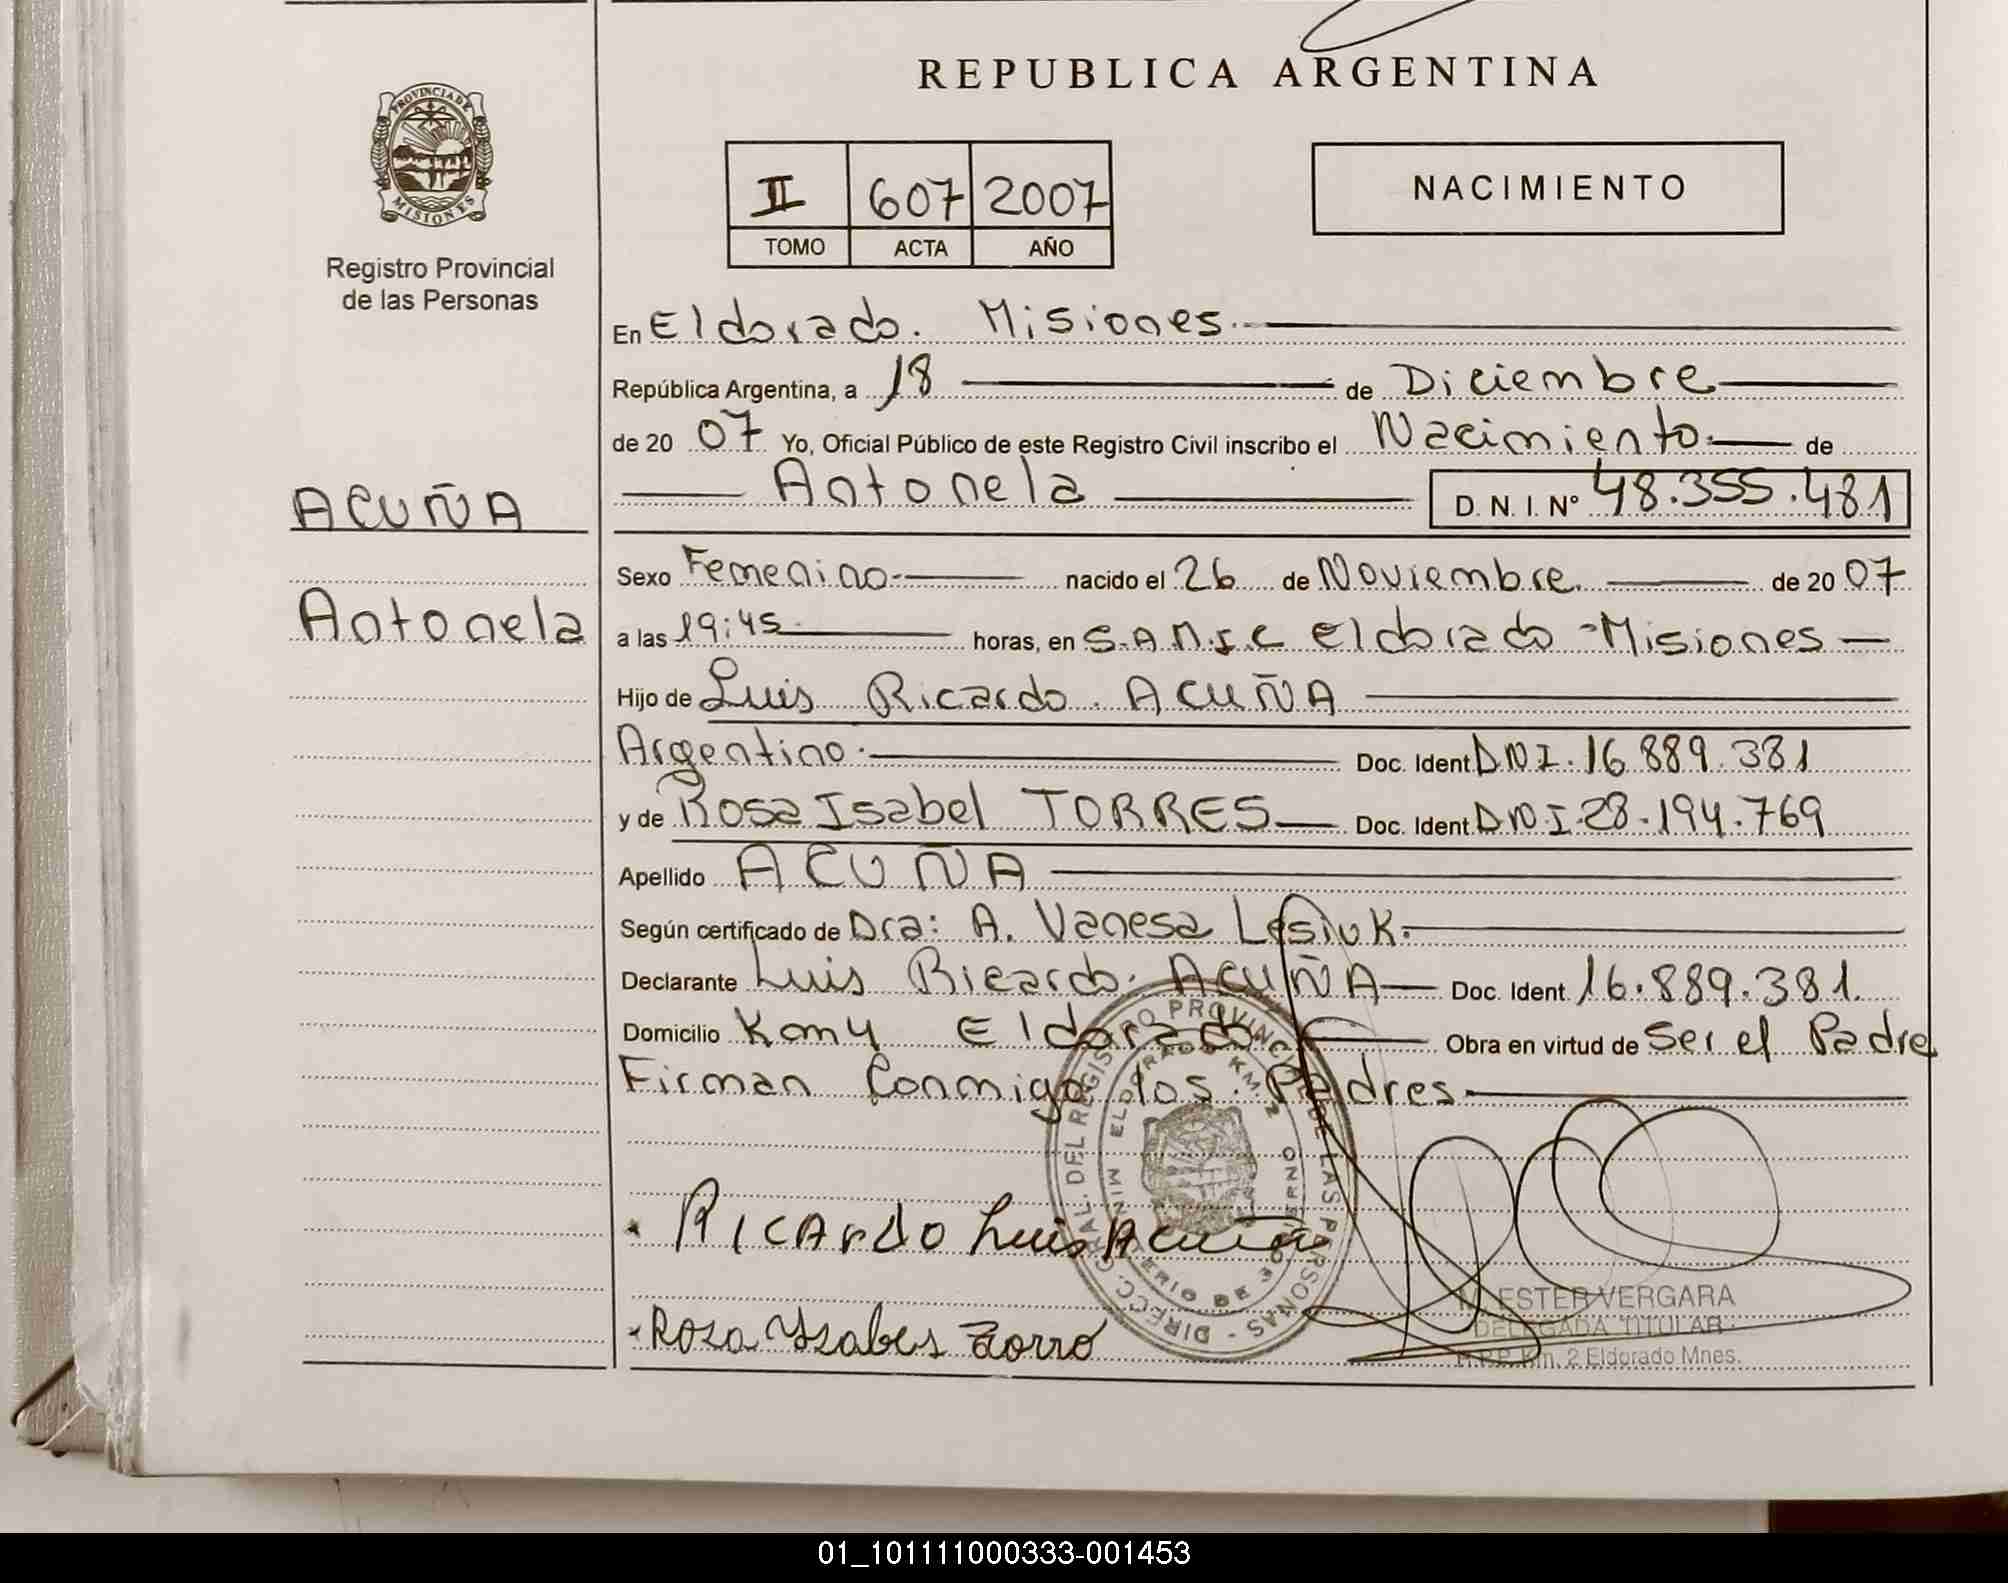 REPUBLICA ARGENTINA
PROVINCIA DE
MISIONES
Registro Provincial
de las Personas
II 607 2007
TOMO ACTA AÑO
NACIMIENTO
En Eldorado. Misiones.
República Argentina, a 18 de Diciembre
de 20 07 Yo, Oficial Público de este Registro Civil inscribo el Nacimiento de
Antonela D.N.I. Nº 48.355.481
ACUÑA
Antonela
Sexo Femenino nacido el 26 de Noviembre de 20 07
a las 19:45 horas, en S.A.M.I.C Eldorado - Misiones
Hijo de Luis Ricardo. ACUÑA
Argentino. Doc. Ident DNI. 16.889.381
y de Rosa Isabel TORRES Doc. Ident DNI. 28.194.769
Apellido ACUÑA
Según certificado de Dra: A. Vanesa Lesiuk.
Declarante Luis Ricardo. ACUÑA Doc. Ident. 16.889.381.
Domicilio Km 4 Eldorado Obra en virtud de Ser el Padre
Firman Conmigo los Padres
RICARDO Luis Acuña
Rosa Ysabes Torro
DIRECC. GRAL. DEL REGISTRO PROVINCIAL DE LAS PERSONAS
ELDORADO KM. 2
MINISTERIO DE GOBIERNO
M. ESTER VERGARA
DELEGADA TITULAR
R.P.P. Km. 2 Eldorado Mnes.
01_101111000333-001453